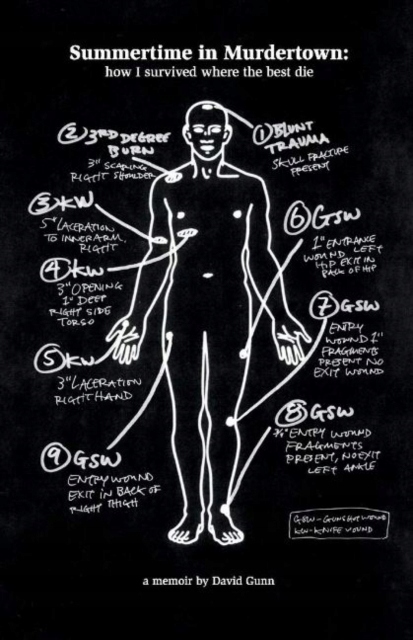 Summertime in Murdertown:
how I survived where the best die
① BLUNT
TRAUMA
SKULL FRACTURE
PRESENT
② 3RD DEGREE
BURN
3" SCARING
RIGHT SHOULDER
③ KW
5" LACERATION
TO INNER ARM,
RIGHT
④ KW
3" OPENING
1" DEEP
RIGHT SIDE
TORSO
⑤ KW
3" LACERATION
RIGHT HAND
⑥ GSW
1" ENTRANCE
WOUND LEFT
HIP EXIT IN
BACK OF HIP
⑦ GSW
ENTRY
WOUND 1"
FRAGMENTS
PRESENT NO
EXIT WOUND
⑧ GSW
ENTRY WOUND
FRAGMENTS
PRESENT, NO EXIT
LEFT ANGLE
⑨ GSW
ENTRY WOUND
EXIT IN BACK OF
RIGHT THIGH
GSW-GUNSHOT WOUND
KW-KNIFE WOUND
a memoir by David Gunn